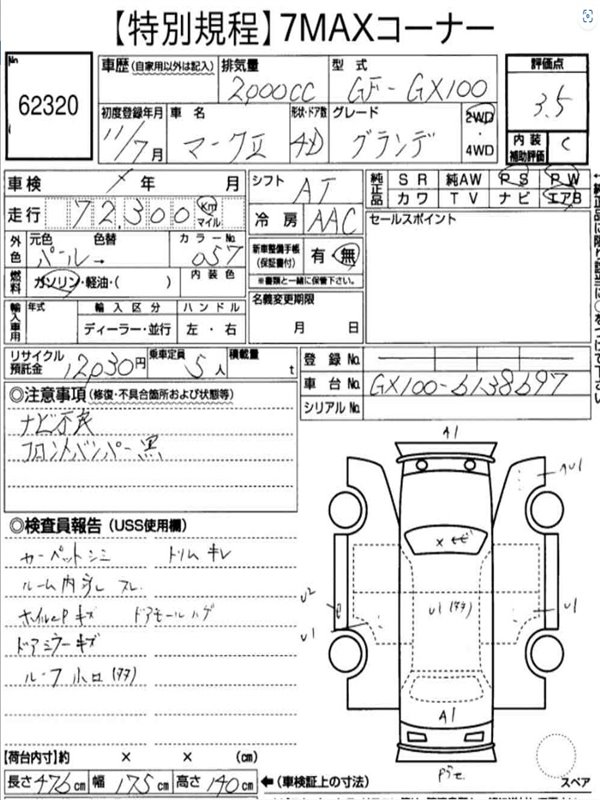 【特別規程】7MAXコーナー
No
62320
車歴 (自家用以外は記入)
排気量 2,000CC
型式 GF-GX100
評価点 3.5
初度登録年月 11/7月
車名 マークⅡ
形状・ドア数 4D
グレード グランデ
2WD・4WD
内装補助評価 C
車検 年 月
シフト AT
純正品 SR 純AW PS PW
カワ TV ナビ エアB
走行 72,300 Km マイル
冷房 AAC
セールスポイント
外色 元色 → 色替 カラーNo.
パール→ 057
新車整備手帳(保証書付) 有・無
※書類と一緒に保管下さい。
燃料 ガソリン・軽油・( ) 内装色
名義変更期限
月 日
輸入車用 年式 輸入区分 ハンドル
ディーラー・並行 左・右
リサイクル預託金 12030円 乗車定員 5人 積載量 t
登録No.
車台No. GX100-6138697
シリアルNo.
◎注意事項 (修復・不具合箇所および状態等)
ナビ不良
フロントバンパー黒
◎検査員報告 (USS使用欄)
カーペットシミ トリムキレ
ルーム内汚レ スレ
キズ ドアモールハゲ
ドアミラーキズ
ルーフ ホロ(タタ)
A1
AU1
×
U1(タタ)
U2
U1
U1
A1
【荷台内寸】約 × × (cm)
長さ476cm 幅175cm 高さ140cm ←(車検証上の寸法)
スペア